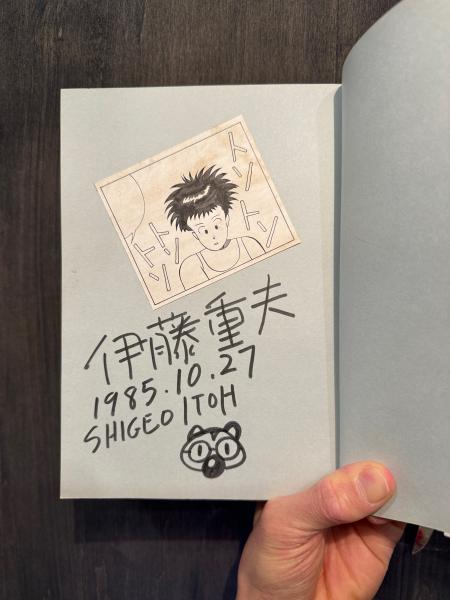 トントン
トントン
伊藤重夫
1985.10.27
SHIGEO ITOH